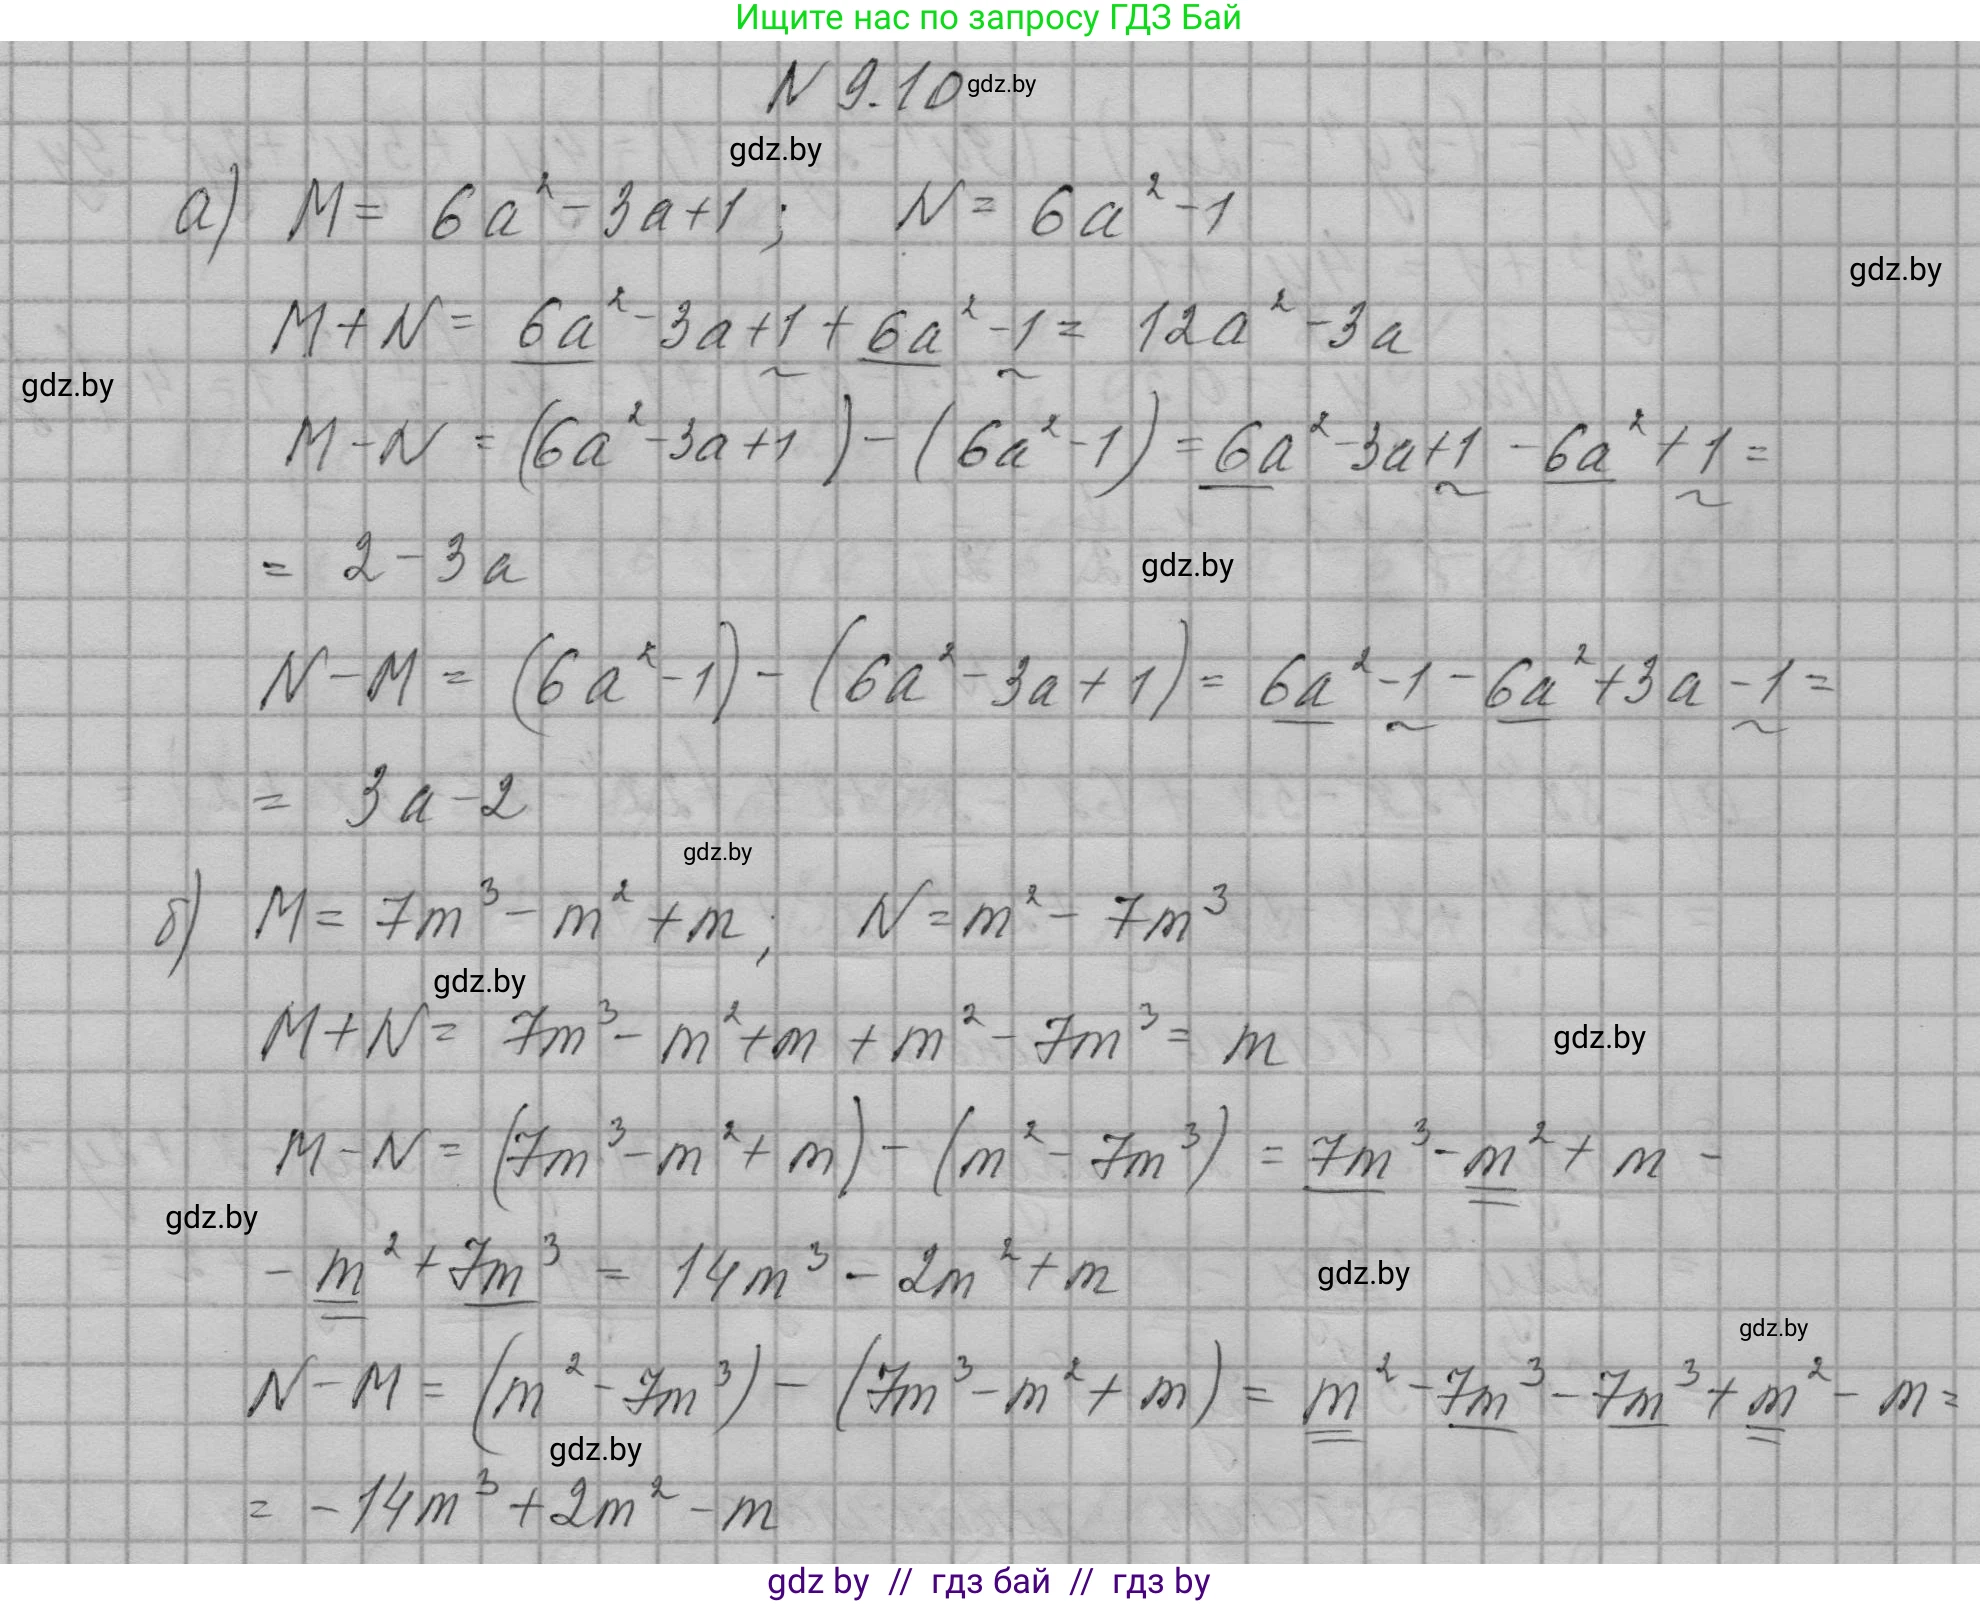 Ищите нас по запросу ГДЗ Бай
N 9.10 gdz.by
gdz.by
а) M = 6a² - 3a + 1 ; N = 6a² - 1
gdz.by
M + N = 6a² - 3a + 1 + 6a² - 1 = 12a² - 3a
gdz.by
M - N = (6a² - 3a + 1) - (6a² - 1) = 6a² - 3a + 1 - 6a² + 1 =
= 2 - 3a
gdz.by
N - M = (6a² - 1) - (6a² - 3a + 1) = 6a² - 1 - 6a² + 3a - 1 =
= 3a - 2
gdz.by
б) M = 7m³ - m² + m ; N = m² - 7m³
gdz.by
M + N = 7m³ - m² + m + m² - 7m³ = m
gdz.by
M - N = (7m³ - m² + m) - (m² - 7m³) = 7m³ - m² + m -
gdz.by
- m² + 7m³ = 14m³ - 2m² + m
gdz.by
gdz.by
N - M = (m² - 7m³) - (7m³ - m² + m) = m² - 7m³ - 7m³ + m² - m =
gdz.by
= - 14m³ + 2m² - m
gdz by // гдз бай // гдз by